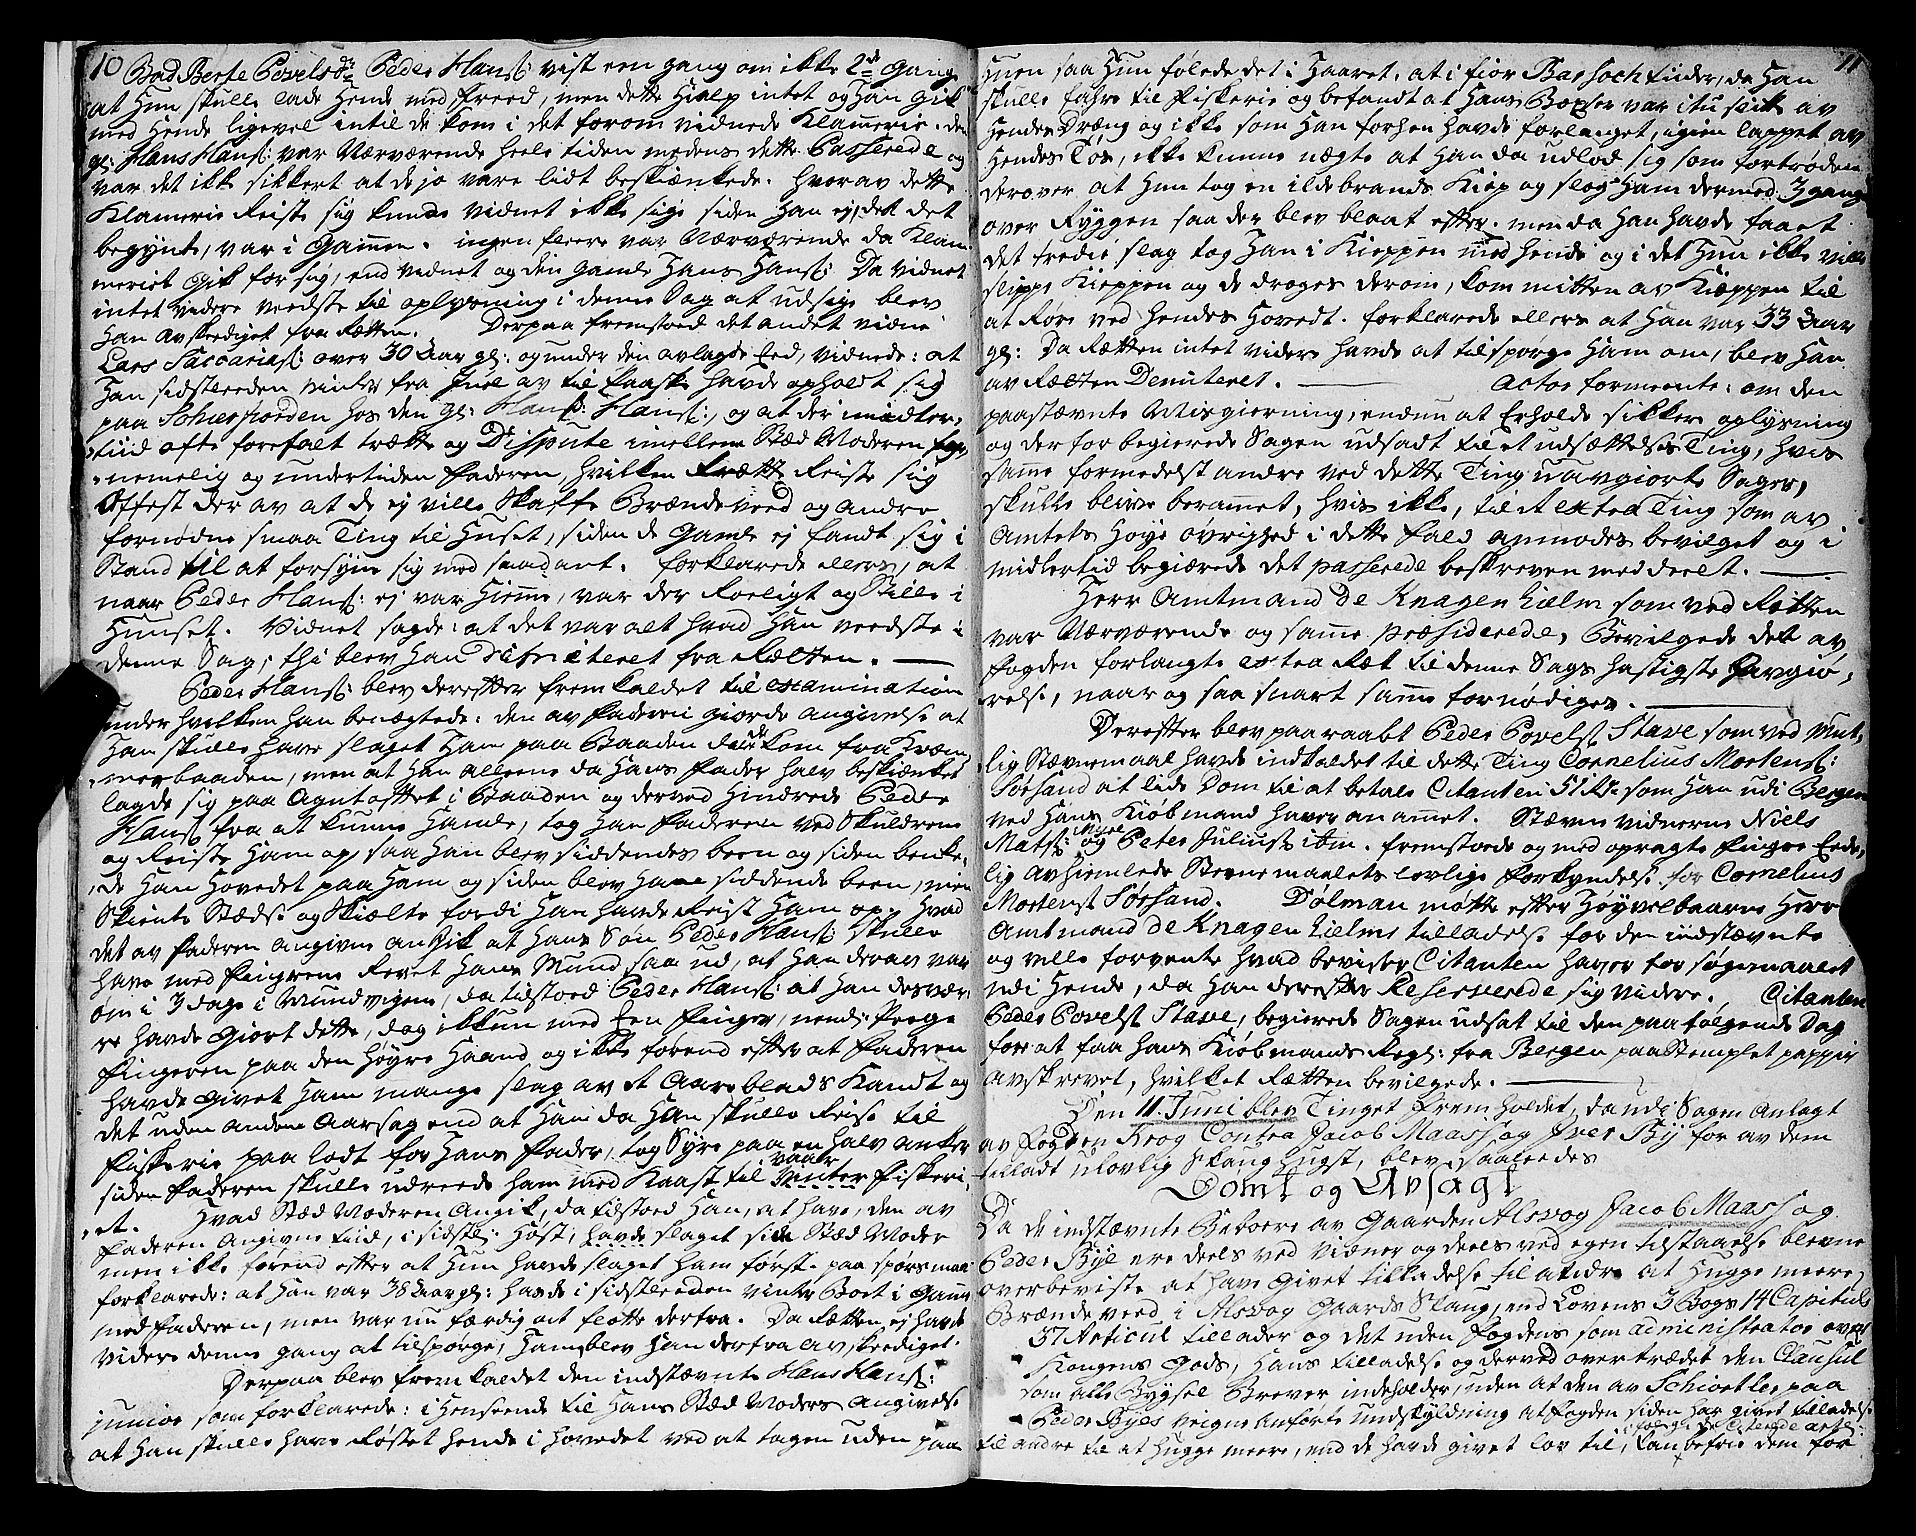 10
Bad Berte Povelsdr Peder Hans: vist een gang om ikke 2de Gange
at Hun skulle lade Hende med freed, men dette Hialp intet og Han Gik
med Hende ligevel intil de kom i det forom vidnede Klamerie. den
gl: Hans Hans: var Nærværende heele tiden medens dette Passerede og
var det ikk sikkert at de jo vare lidt beskiænkede. hvorav dette
Klamerie Reiste sig kunde vidnet ikke sige siden Han ej, det det
begynte, var i Gammen. ingen fleere var Nærværende da Klam
meriet Gik for sig, end vidnet og den Gamle Hans Hans: Da vidnet
intet videre veedste til oplysning i denne Sag at udsige blev
Han avskediget fra Retten. Derpaa fremstoed det andet vidne
Lars Saccarias: over 30 Aar gl: og under den avlagde Eed, vidnede: at
Han sidstleeden vinter fra Juel av til Paaske havde opholdt sig
paa Schierfiorden hos den gl: Hans: Hans:, og at der imidler,
tiid ofte forefalt trætte og Dispute imellem Stæd Moderen for,
nemelig og undertiden Faderen, hvilken trætte Reiste sig
oftest der av at de ej ville Skaffe Brændeveed og andre
fornødne smaa Ting til Huset, siden de Gamle ej fandt sig i
Stand til at forsyne sig med saadant. forklarede ellers, at
naar Peder Hans: ej var Hiemme, var der Roeligt og Stille i
Huuset. Vidnet sagde: at det var alt hvad Han veedste i
denne Sag, thi blev Han demiteret fra Rætten.
Peder Hans: blev derefter fremkaldet til examination
under hvilken han benægtede: den av Faderen Giorde angivelse at
Han skulle have slaget Ham paa Baaden da de kom fra Kræm
merbaaden, men at Han alleene da Hans Fader halv beskiænket
lagde sig paa Agutofttet i Baaden og derved Hindrede Peder
Hans: fra at kunne Hamle, tog Han Faderen ved Skuldrene
og Reiste Ham op, saa Han blev siddendes been og siden benke,
de Han Hovedet paa Ham og siden blev Ham siddende been, men
Skiente Stædse og Skiælte fordi Han havde Reist Ham op. Hvad
det av Faderen angivne angik at Hans Søn Peder Hans: skulle
have med fingrene Revet Hans Mund saa ud, at Han derav var
øm i 3 dage i Mundvigene, da tilstoed Peder Hans: at Han desvær
re havde Giort dette, dog ikkun med Een Finger, nemlig: Pege
fingeren paa den Høyre Haand og ikke forend efter at Faderen
havde Givet Ham mange slag av et Aareblads Kandt og
det uden anden Aarsag end at Han da Han skulle Reise til
Fiskerie paa lodt for Hans Fader, tog Syre paa en halv anker
siden Faderen skulle udreede ham med Kaast til vaar Vinter Fiskeri,
et. Hvad Stæd Moderen Angik, da tilstoed Han, at have, den av
Faderen Angivne tiid, i sidstl: Høst, havde slaget sin Stæd Moder
men ikke forend efter at Hun havde slaget Ham først. paa spørsmaal
forklarede: at Han var 38 Aar gl: Havde i sidstleeden vinter Boet i Gamme
med Faderen, men var nu færdig at fløtte derfra. Da Retten ej havde
videre denne gang at tilspørge Ham, blev Han derfra avskediget.
Derpaa blev fremkaldet den indstævnte Hans Hans:
junior som forklarede: i Henseende til Hans Stæd Moders Angivelse
at Han skulle have Røstet Hende i Hovedet ved at tagen uden paa
11
Huen saa Hun følede det i Haaret, at i fior Barsoch tiider, da Han
skulle fahre til Fiskerie og befandt at Hans Boxser var itu slidt av
Hendes Dræng og ikke som Han forhen havde forlanget, igien lappet av
Hendes Tøs, ikke kunne nægte at Han da udlod sig som fortrøden
derover at Hun tog en ildebrands Kiep og slog Ham dermed 3 gange
over Ryggen saa der blev blaat efter. men da Han havde faaet
det tredie slag tog Han i Kieppen med hende og i det Hun ikke ville
slippe Kieppen og de droges derom, kom mitten av Kieppen til
at Røre ved hendes Hovedt. forklarede ellers at Han var 33 Aar
gl: Da Rætten intet videre havde at tilspørge Ham om, blev Han
av Rætten Demiteret. Actor formeente: om den
paastævnte Misgierning, endnu at Erholde sikker oplysning
og derfor begierede Sagen udsadt til et udsættelses Ting, hvis
samme formedelst andre ved dette Ting uavgiorte Sager,
skulle blive berammet, hvis ikke, til et extra Ting som av
Amtets Høye Øvrighed i dette fald anmodes bevilget og i
midlertid begiærede det passerede beskreven meddeelt.
Herr Amtmand De Knagenhielm som ved Rætten
var Nærværende og samme præsiderede, Bevilgede det av
Fogden forlangte extra Ræt til denne Sags hastigste avgiø,
relse, naar og saa snart samme fornødiges.
Derefter blev paaraabt Peder Povels: Stave som ved Mut,
lig Stævnemaal havde indkaldet til dette Ting Cornelius Mortens:
Sørsand at lide Dom til at betale Citanten 51 lb: som Han udi Bergen
ved Hans Kiøbmand haver anammet. Stævne vidnerne Niels
Mats: Myre og Peter Julius: ibm. fremstoede og med opragte Fingre Eede,
lig avhiemlede Stevnemaalets lovlige forkyndelse for Cornelius
Mortens: Sørsand. Dølman møtte efter Høyvelbaarne Herr
Amtmand de Knagenhielms tilladelse for den indstævnte
og ville forvente hvad beviser Citanten haver for søgemaalet
udi Hende, da Han derefter Reserverede sig videre. Citanten
Peder Povels: Stave, begierede Sagen udsat til den paafølgende Dag
for at faa hans Kiøbmands Regl: fra Bergen paa Stemplet pappir
avskrevet, hvilket Rætten bevilgede.
Den 11. Juni blev Tinget fremholdet, da udi Sagen Anlagt
av Fogden Krog Contra Jacob Maass og Iver By for av dem
tilladt ulovlig Skaug Hugst, blev saaleedes
Dømt og Avsagt
Da de indstævnte Beboere av Gaarden Alsvog Jacob Maass og
Peder Bye ere deels ved vidner og deels ved egen tilstaaelse blevne
overbeviste at have Givet tilladelse til andre at Hugge meere
Brændeveed i Alsvog Gaards Skaug, end Lovens 3 Bogs 14 Capituls
37 Articul tillader og det uden Fogdens som administrator over
Kongens Gods, Hans tilladelse og derved overtrædet den Clausul
som alle Bygsel Brever indeholder, uden at den av Schiøtler paa
Peder Byes veigne anførte undskyldning at Fogden siden har givet tilladelse
til andre til at Hugge meere, end de havde givet lov til, i følge de Citerede art: kan befrie dem for